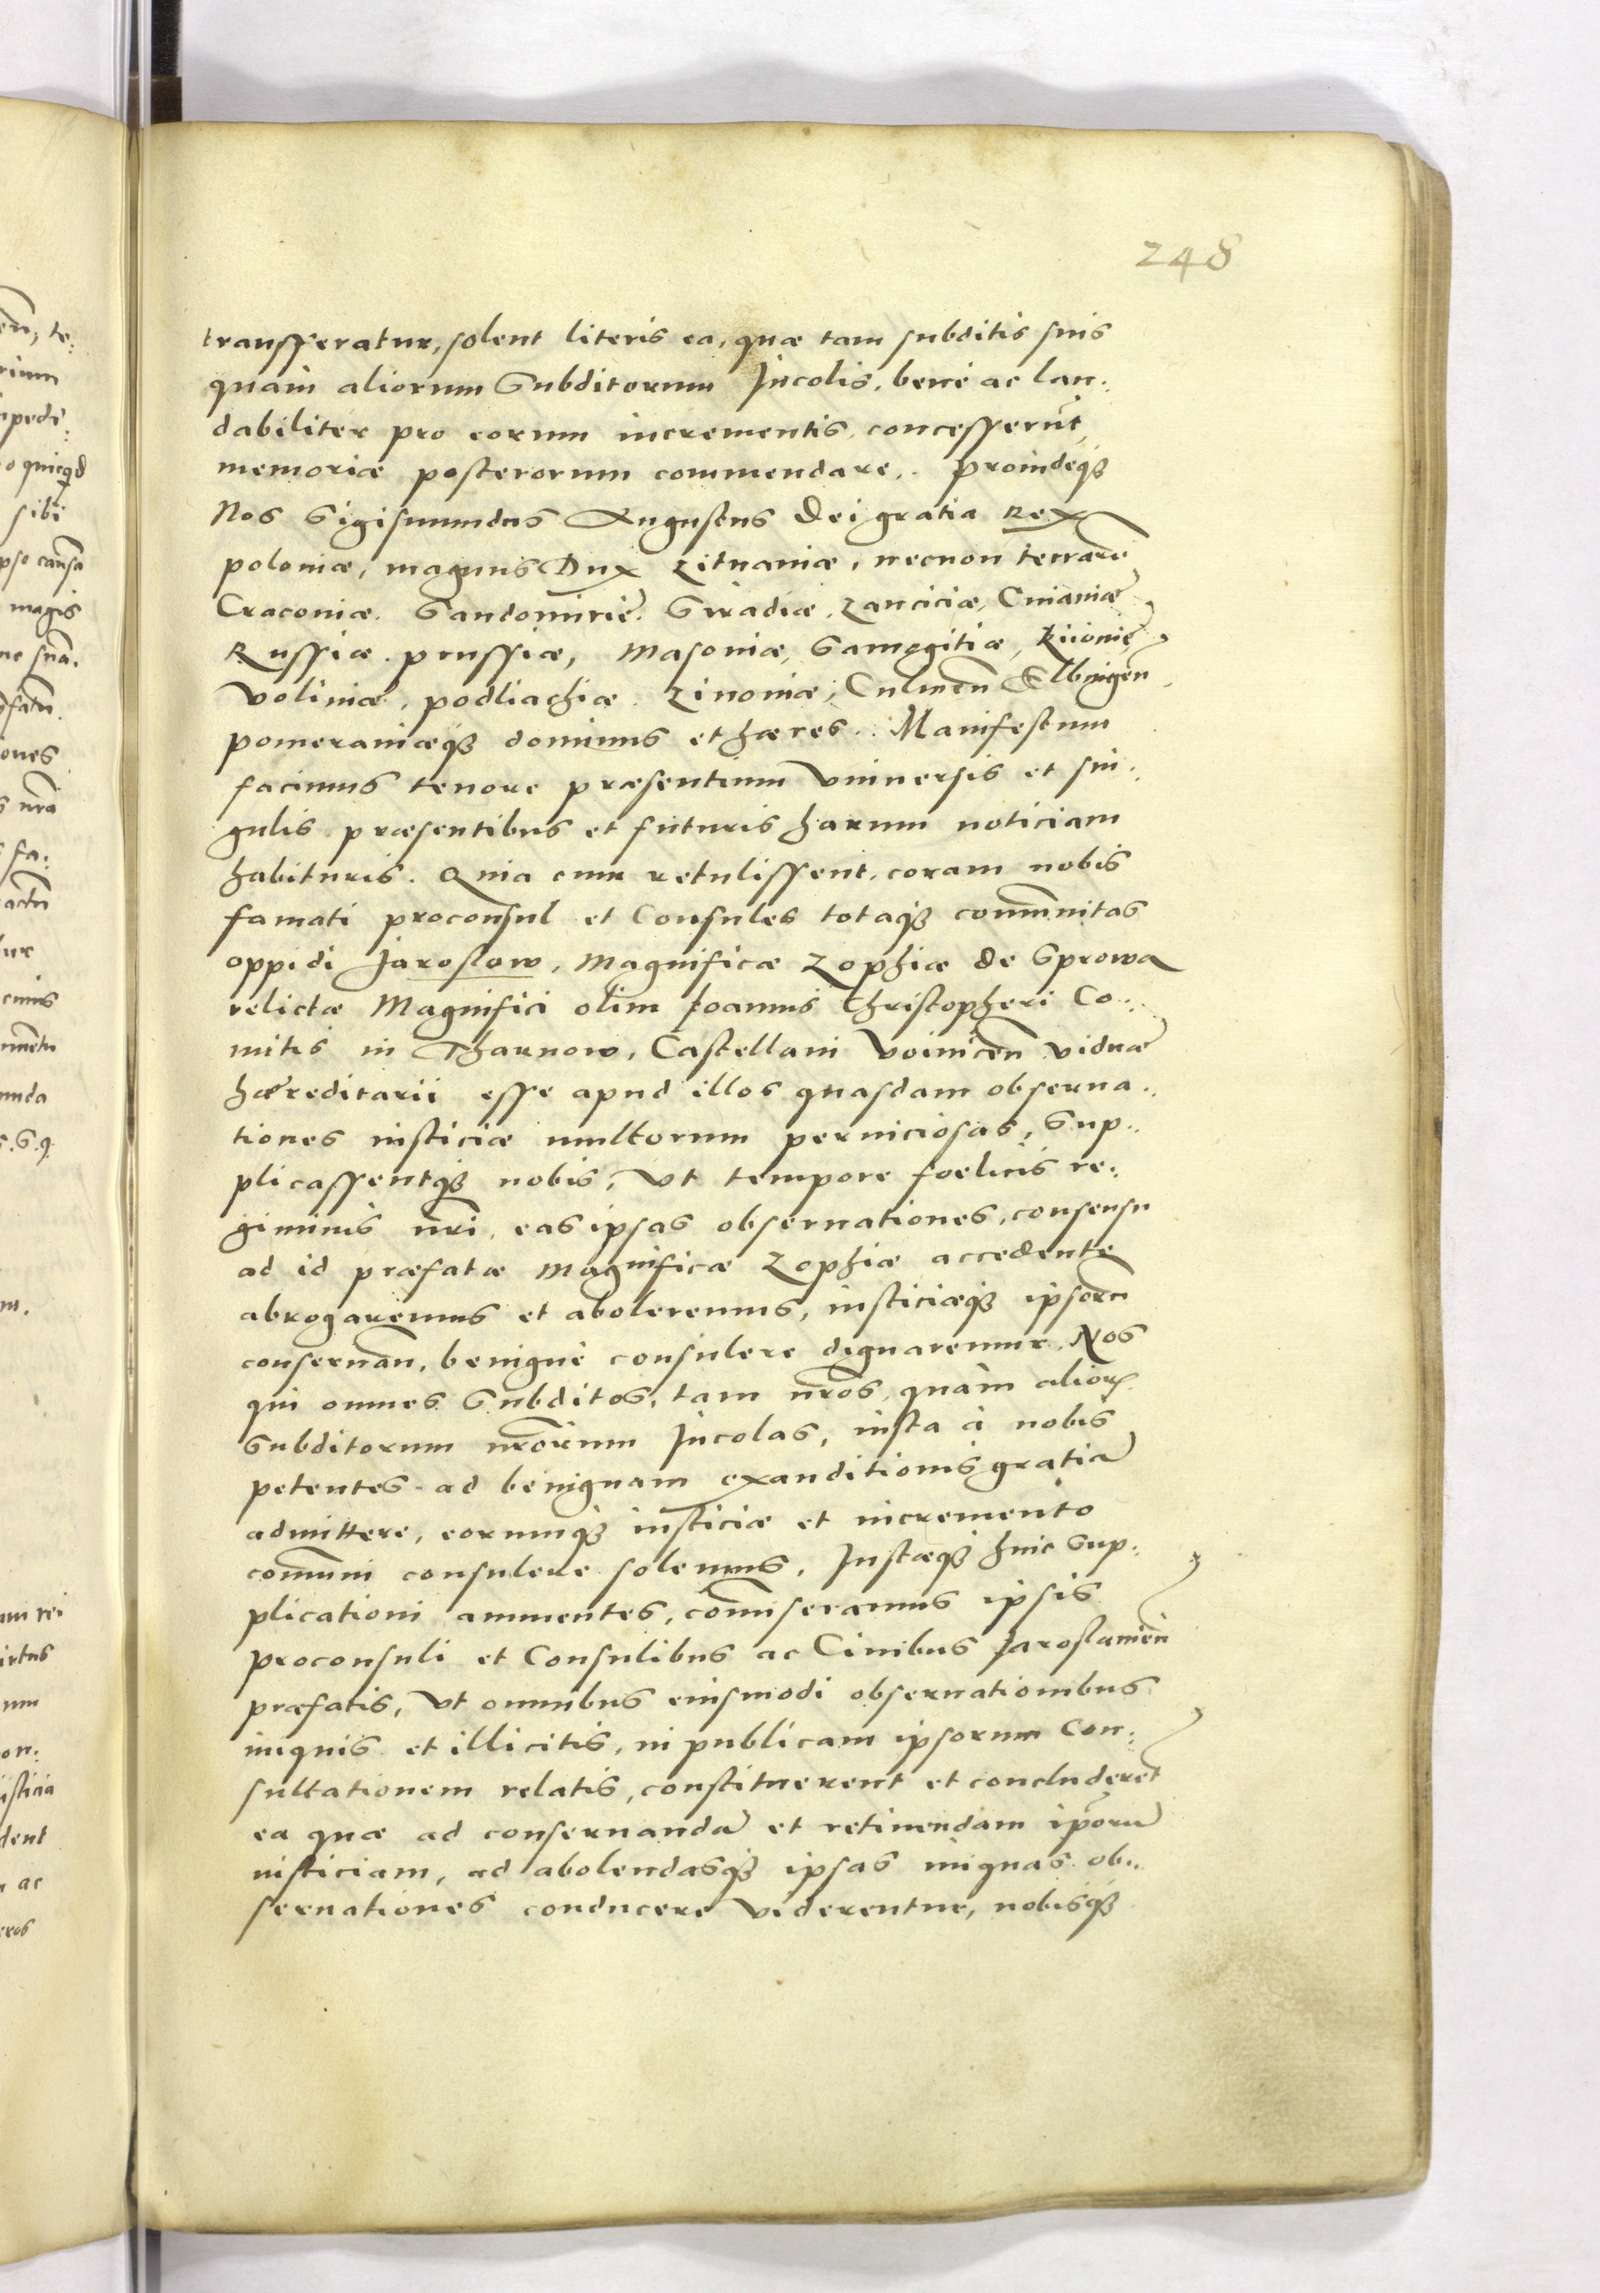 248
transfferatur, solent literis ea, quæ tam subditis suis
quàm aliorum Subditorum Incolis, benè ac lau:
dabiliter pro eorum incrementis, concesserūt,
memoriæ posterorum commendare. Proindeq̃
Nos Sigismundus Augustus Dei gratia Rex
poloniæ, magnus Dux Lituaniæ, necnon terrarū
Cracouiæ. Sandomirię. Siradiæ. Lanciciæ, Cuiauiæ
Russiæ. prussiæ, Masouiæ, Samogitiæ, Kiiouię,
Voliniæ, podliachiæ. Liuoniæ, Culmeñ Elbingeñ
pomeraniæq̃ dominus et hæres. Manifestum
facimus tenore præsentium Vniuersis et sin:
gulis præsentibus et futuris harum noticiam
habituris. Quia cum retulissent, coram nobis
famati proconsul et Consules totaq̃ com̃unitas
oppidi Jaroslow, Magnificæ Zophiæ de Sprowa
relictæ Magnifici olim Joannis Christopheri Co:
mitis in Tharnow, Castellani Voiniceñ Viduæ
hæreditarii esse apud illos quasdam obserua:
tiones iusticiæ multorum perniciosas, Sup:
plicassentq̃ nobis, Vt tempore foelicis re:
giminis nr̃i, eas ipsas obseruationes, consensu
ad id præfatæ Magnificæ Zophiæ accedente
abrogaremus et aboleremus, iusticiæq̃ ipsorū
conseruañ, benignè consulere dignaremur. Nos
qui omnes Subditos, tam nr̃os, quàm alioꝝ
Subditorum nr̃orum Incolas, iusta à nobis
petentes ad benignam exauditionis gratiā
admittere, eorumq̃ iusticiæ et incremento
com̃uni consulere solemus, Justæq̃ huic Sup:
plicationi annuentes, com̃iseramus ipsis
proconsuli et Consulibus ac Ciuibus Jaroslauieñ
præfatis, Vt omnibus eiusmodi obseruationibus
iniquis et illicitis, in publicam ipsorum Con:
sultationem relatis, constituerent et concluderēt
ea quæ ad conseruandā et retinendam ip̃orū
iusticiam, ad abolendasq̃ ipsas iniquas ob:
seruationes conducere Viderentur, nobisq̃